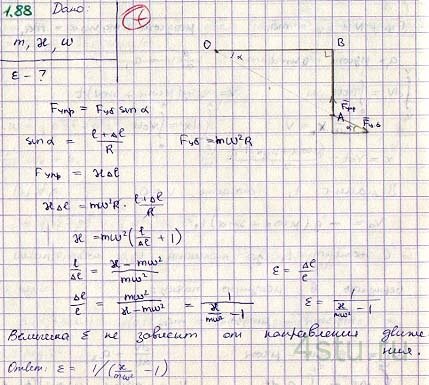 1.88 Дано:
m, ϰ, ω
ε - ?
O B
α
F⃗упр
A
x α F⃗цб
Fупр = Fцб sin α
sin α = (l + Δl)/R Fцб = mω²R
Fупр = ϰΔl
ϰΔl = mω²R · (l + Δl)/R
ϰ = mω²(l/Δl + 1)
l/Δl = (ϰ - mω²)/mω² ε = Δl/l
Δl/l = mω²/(ϰ - mω²) = 1/(ϰ/mω² - 1) ε = 1/(ϰ/mω² - 1)
Величина ε не зависит от направления движе
ния.
Ответ: ε = 1/(ϰ/mω² - 1)